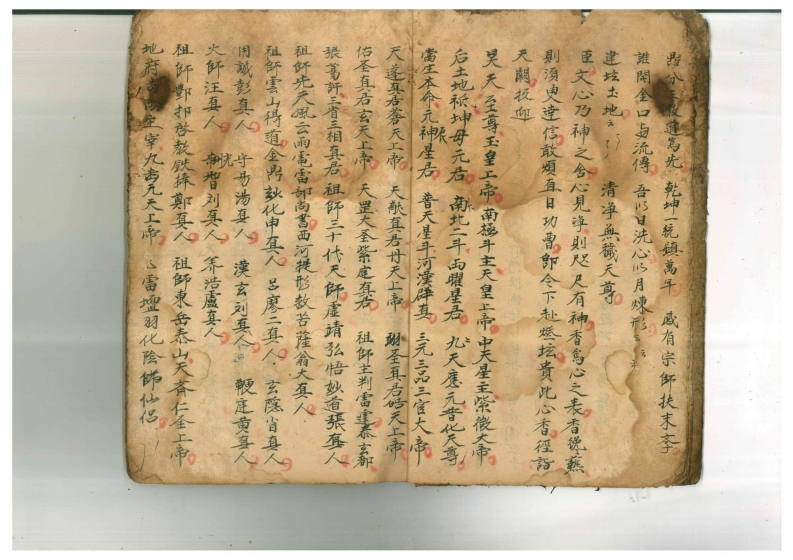 分 道為先 乾坤一統鎮萬年 咸有宗師扶末季
誰開金口与流傳 吾以日洗心以月煉形云云
建坛土地云云 清净無穢天尊
臣文心乃神之舍心見净則咫尺有神香爲心之表香纔爇
則須臾達信敢煩直日功曹即令下赴焚坛賫此心香徑詣
天闕投卸
昊天至尊玉皇上帝 南極斗主天皇上帝 中天星主紫微大帝
后土地祇坤母元君 南北二斗両曜星君 九天應元普化天尊
當生本命元辰神星君 普天星斗河漢群真 三元三品三官大帝
天蓬真君蒼天上帝 天猷真君丹天上帝 翊聖真君皓天上帝
佑圣真君玄天上帝 天罡大圣紫庭真君 祖師主判雷霆泰玄都
張葛許三省三相真君 祖師三十代天師虚靖弘悟妙道張真人
祖師先天風云雨電雷部尚書西河提形救苦薩翁大真人
祖師雲山得道金門妙化申真人 呂廖二真人 玄隱肖真人
用誠彭真人 守易湯真人 漢玄刘真人 鞭庭黄真人
火師汪真人 智刘真人 养浩盧真人
祖師鄷都啓教鉄捧鄭真人 祖師東岳泰山天斎仁圣上帝
地府 九 元天上帝 雷壇羽化陰師仙侣